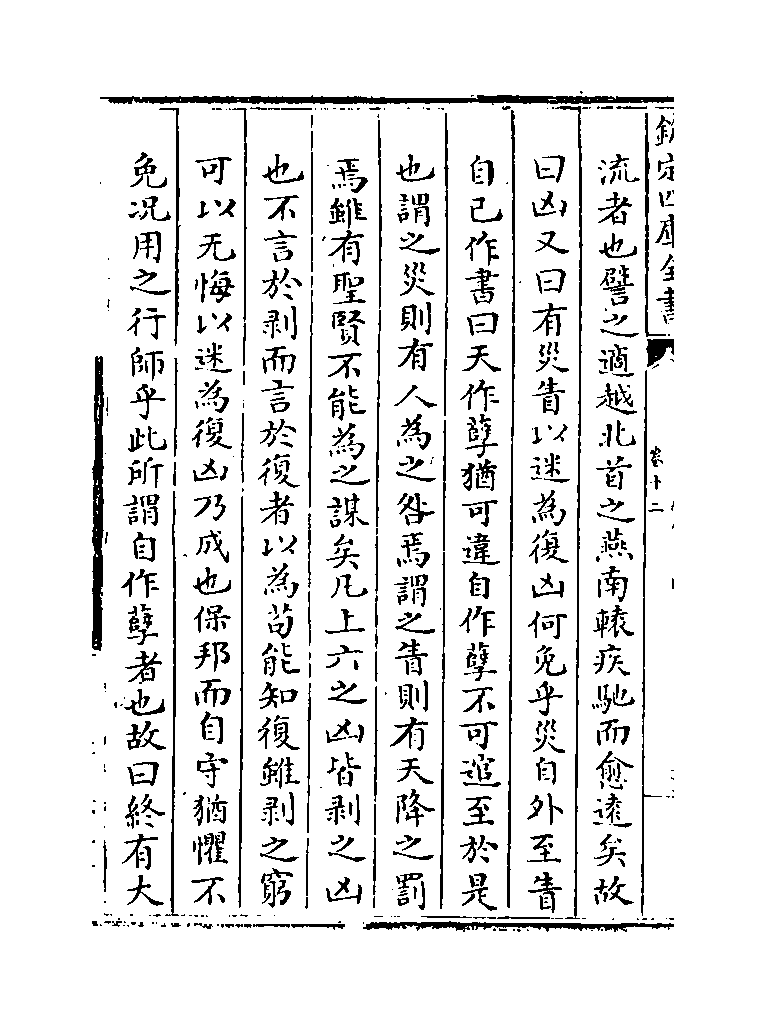 欽定四庫全書
卷十二
流者也譬之適越北首之燕南轅疾馳而愈遠矣故
曰凶又曰有災眚以迷為復凶何免乎災自外至眚
自己作書曰天作孽猶可違自作孽不可逭至於是
也謂之災則有人為之咎焉謂之眚則有天降之罰
焉雖有聖賢不能為之謀矣凡上六之凶皆剥之凶
也不言於剥而言於復者以為茍能知復雖剥之窮
可以无悔以迷為復凶乃成也保邦而自守猶懼不
免况用之行師乎此所謂自作孽者也故曰終有大